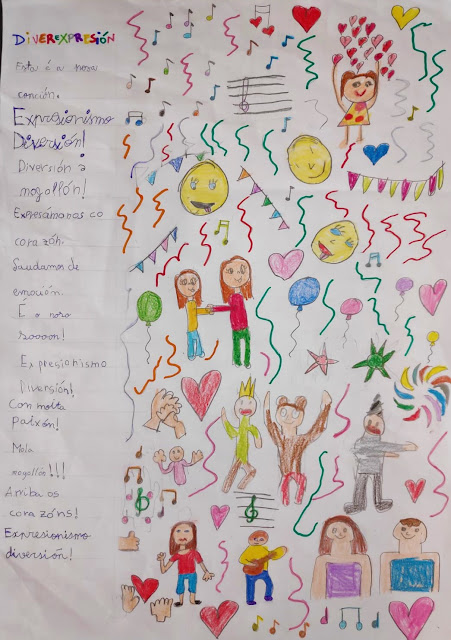 DIVEREXPRESIÓN
Esta é a nosa
canción.
Expresionismo
Diversión!
Diversión a
mogollón!
Expresámonos co
corazón.
Saudamos de
emoción.
É o noso
Expresionismo
Diversión!
Con moita
Paixón!
Mola
mogollón!!!
Arriba os
corazóns!
Expresionismo
diversión!